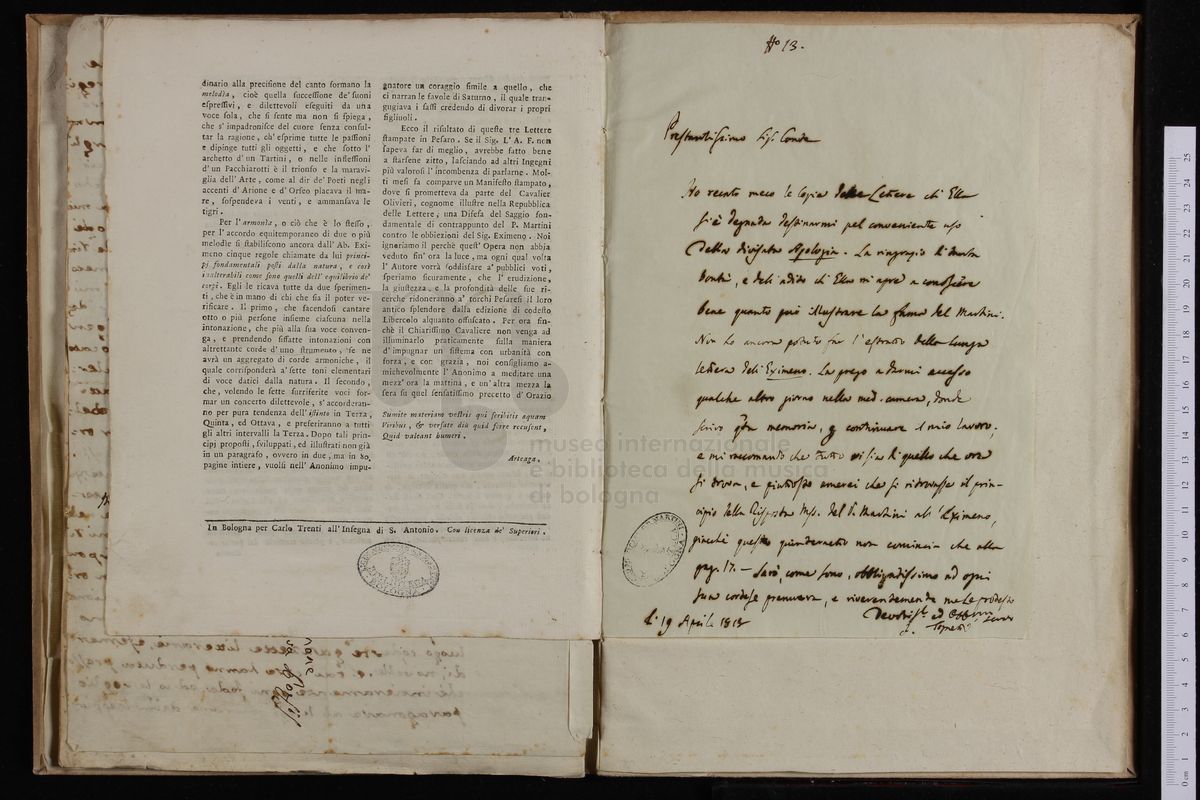 dinario alla preciſione del canto formano la
melodìa, cioè quella ſucceſſione de' ſuoni
eſpreſſivi, e dilettevoli eſeguiti da una
voce ſola, che ſi ſente ma non ſi ſpiega,
che s' impadroniſce del cuore ſenza conſul-
tar la ragione, ch' eſprime tutte le paſſioni
e dipinge tutti gli oggetti, e che ſotto l'
archetto d' un Tartini, o nelle infleſſioni
d' un Pacchiarotti è il trionfo e la maravi-
glia dell' Arte, come al dir de' Poeti negli
accenti d' Arione e d' Orfeo placava il ma-
re, ſoſpendeva i venti, e ammanſava le
tigri.
Per l' armonìa, o ciò che è lo ſteſſo,
per l' accordo equitemporaneo di due o più
melodìe ſi ſtabiliſcono ancora dall' Ab. Exi-
meno cinque regole chiamate da lui princi-
pj fondamentali poſti dalla natura, e così
inalterabili come ſono quelli dell' equilibrio de'
corpi. Egli le ricava tutte da due ſperimen-
ti, che è in mano di chi che ſia il poter ve-
rificare. Il primo, che facendoſi cantare
otto o più perſone inſieme ciaſcuna nella
intonazione, che più alla ſua voce conven-
ga, e prendendo ſiffatte intonazioni con
altrettante corde d' uno ſtrumento, ſe ne
avrà un aggregato di corde armoniche, il
quale corriſponderà a' ſette toni elementari
di voce datici dalla natura. Il ſecondo,
che, volendo le ſette ſurriferite voci for-
mar un concerto dilettevole, s' accorderan-
no per pura tendenza dell' iſtinto in Terza,
Quinta, ed Ottava, e preferiranno a tutti
gli altri intervalli la Terza. Dopo tali prin-
cipj propoſti, ſviluppati, ed illuſtrati non già
in un paragrafo, ovvero in due, ma in 80,
pagine intiere, vuolſi nell' Anonimo impu-
gnatore un coraggio ſimile a quello, che
ci narran le favole di Saturno, il quale tran-
gugiava i ſaſſi credendo di divorar i propri
figliuoli.
Ecco il riſultato di queſte tre Lettere
ſtampate in Peſaro. Se il Sig. L' A. F. non
ſapeva far di meglio, avrebbe fatto bene
a ſtarſene zitto, laſciando ad altri Ingegni
più valoroſi l' incombenza di parlarne. Mol-
ti meſi fa comparve un Manifeſto ſtampato,
dove ſi prometteva da parte del Cavalier
Olivieri, cognome illuſtre nella Repubblica
delle Lettere, una Difeſa del Saggio fon-
damentale di contrappunto del P. Martini
contro le obbiezioni del Sig. Eximeno. Noi
ignoriamo il perchè queſt' Opera non abbia
veduto fin' ora la luce, ma ogni qual volta
l' Autore vorrà ſoddisfare a' pubblici voti,
ſperiamo ſicuramente, che l' erudizione,
la giuſtezza, e la profondità delle ſue ri-
cerche ridoneranno a' torchi Peſareſi il loro
antico ſplendore dalla edizione di codeſto
Libercolo alquanto offuſcato. Per ora fin-
chè il Chiariſſimo Cavaliere non venga ad
illuminarlo praticamente ſulla maniera
d' impugnar un ſiſtema con urbanità con
forza, e con grazia, noi conſigliamo a-
michevolmente l' Anonimo a meditare una
mezz' ora la mattina, e un' altra mezza la
ſera ſu quel ſenſatiſſimo precetto d' Orazio
Sumite materiam veſtris qui ſcribitis aquam
Viribus, & verſate diù quid ferre recuſent,
Quid valeant humeri.
Arteaga.
In Bologna per Carlo Trenti all' Inſegna di S. Antonio. Con licenza de' Superiori.
No 13.
Prestantissimo Sig. Conte
Ho recato meco le Copie delle Lettere ch' Ella
si è degnata destinarmi pel conveniente uso
della divisata Apologia. La ringrazio di questa
bontà, e dell' adito ch' Ella m' apre a conoscere
bene quanto può illustrare la fama del Martini.
Non ho ancora potuto far l' estratto della lunga
lettera dell' Eximeno. La prego a darmi accesso
qualche altro giorno nella med. camera, donde
scrivo memoria, continuare il mio lavoro.
e mi raccomando che tutto vi sia di quello che ora
si trova, e piuttosto amerei che si ritrovasse il prin-
cipio della Risposta Mss. del P. Martini all' Eximeno,
giacchè questo quinternetto non comincia che alla
pag. 17. — Sarò, come sono, obbligatissimo ad ogni
sua cortese premura, e riverentemente me Le protesto
Li 19 Aprile 1813
Devotiss. ed Obb.mo Servo
museo internazionale
e biblioteca della musica
di bologna